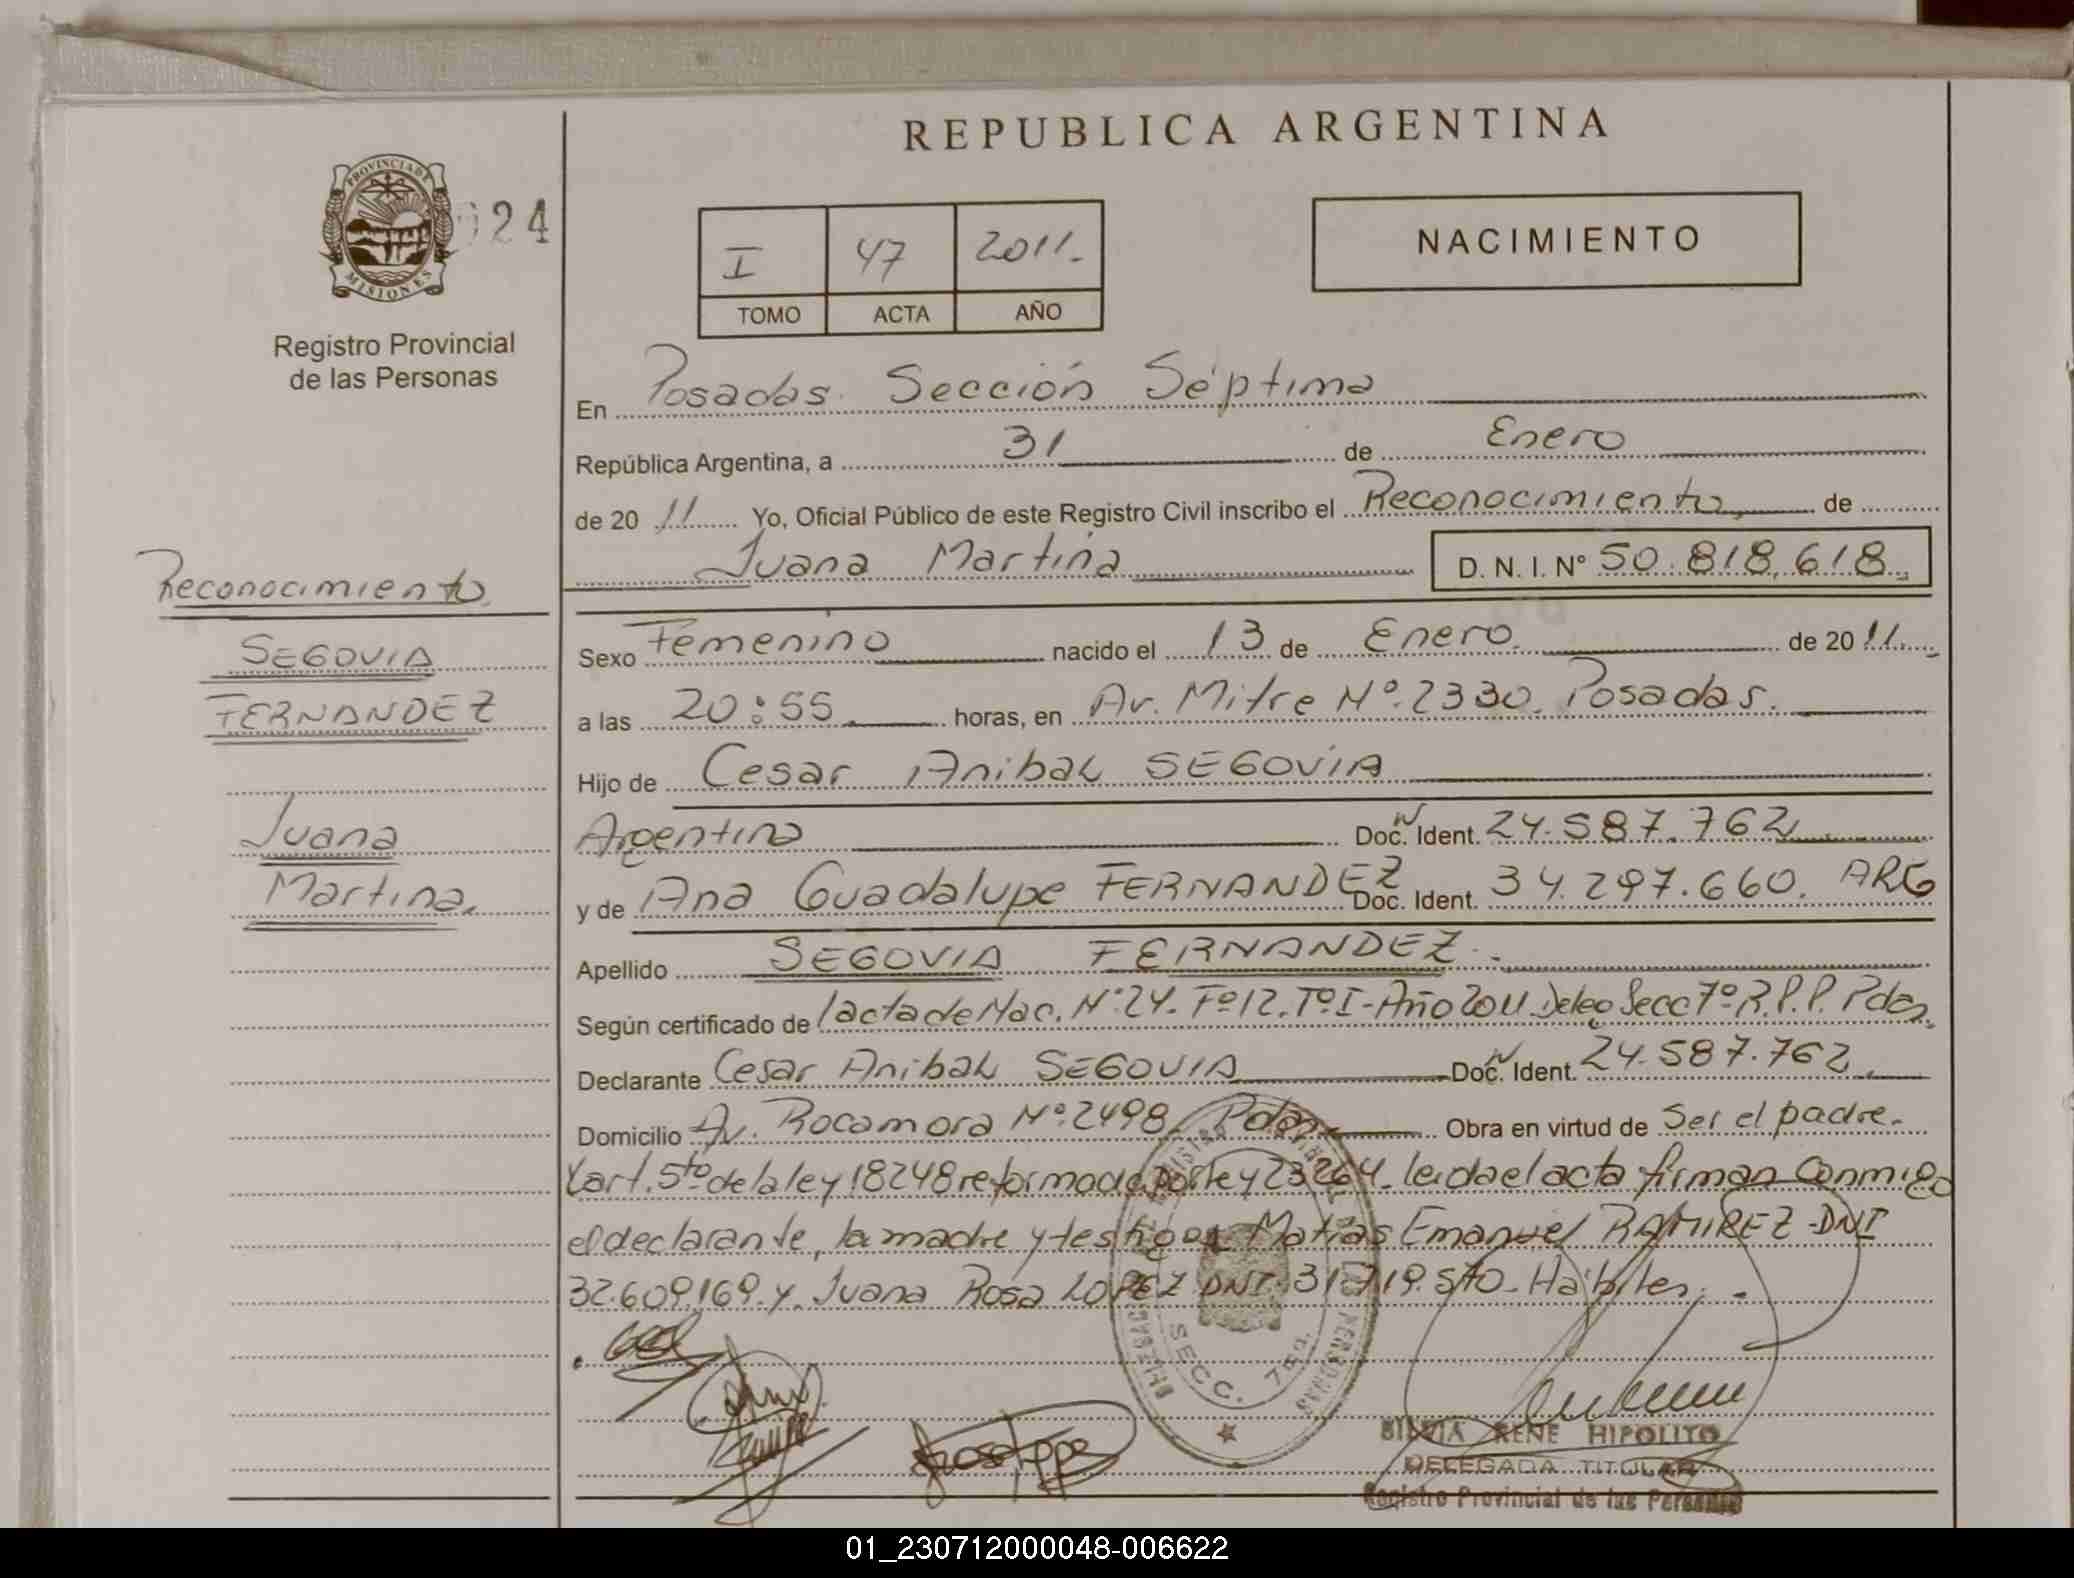 REPUBLICA ARGENTINA
PROVINCIA DE
MISIONES
24
Registro Provincial
de las Personas
I 47 2011.
TOMO ACTA AÑO
NACIMIENTO
En Posadas. Sección Séptima
República Argentina, a 31 de Enero
de 20 11 Yo, Oficial Público de este Registro Civil inscribo el Reconocimiento, de
Juana Martina D. N. I. Nº 50.818.618.
Reconocimiento
SEGOVIA
FERNANDEZ
Juana
Martina.
Sexo Femenino nacido el 13 de Enero. de 20 11.
a las 20:55 horas, en Av. Mitre Nº.2330. Posadas.
Hijo de Cesar Anibal SEGOVIA
Argentina Doc. Ident. 24.587.762
y de Ana Guadalupe FERNANDEZ Doc. Ident. 34.297.660. ARG
Apellido SEGOVIA FERNANDEZ.
Según certificado de 1 acta de Nac. Nº24. Fº12. TºI-Año 2011 Deleg Secc 7º R.P.P. Pdas.
Declarante Cesar Anibal SEGOVIA Doc. Ident. 24.587.762.
Domicilio Av. Rocamora Nº.2498. Pdas. Obra en virtud de Ser el padre.
Yart. 5to de la ley 18248 reformada por ley 23264. leida el acta firman Conmigo
el declarante, la madre y testigos Matias Emanuel RAMIREZ-DNI
32.609.169. y. Juana Rosa LOPEZ DNI. 31.719.570. Hábiles.
SECC. 7ma.
SILVIA RENE HIPOLITO
DELEGADA TITULAR
Registro Provincial de las Personas
01_230712000048-006622